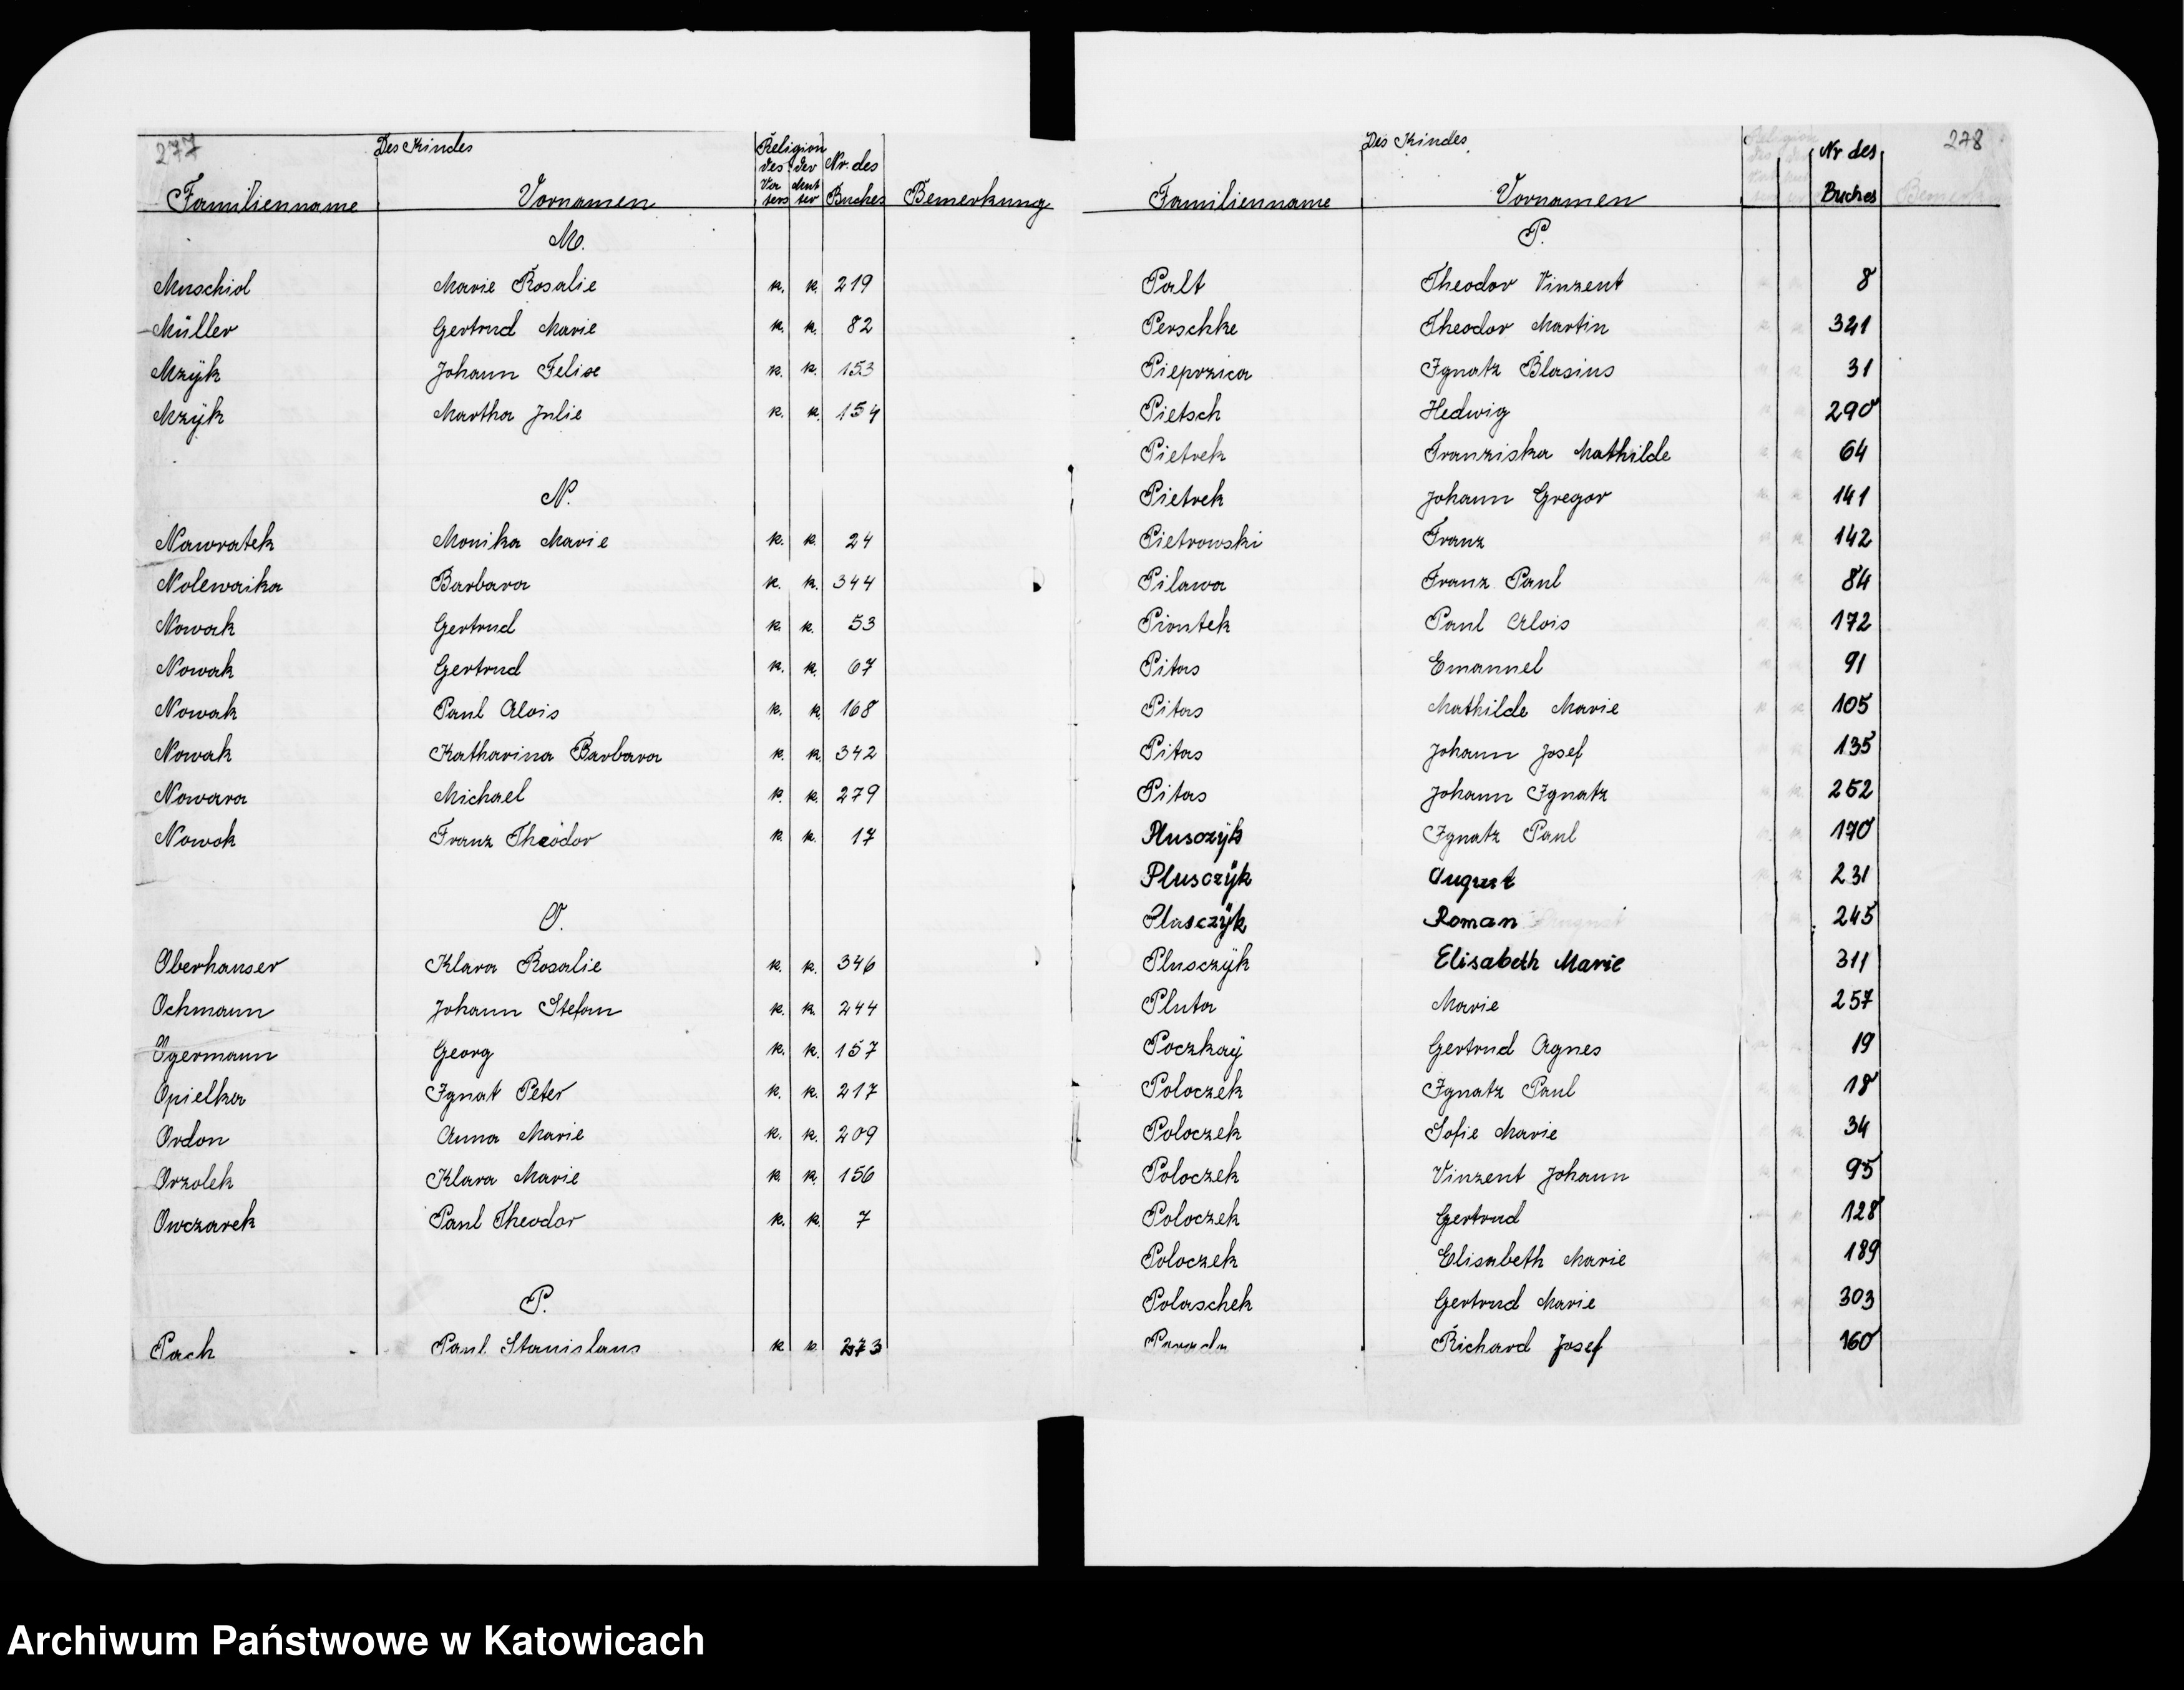 277
Des Kindes
Religion des Vaters der Mutter
Nr. des Buches
Familienname Vornamen Bemerkung
M.
Muschiol Marie Rosalie k. k. 219
Müller Gertrud Marie k. k. 82
Mzÿk Johann Felix k. k. 153
Mzÿk Martha Julie k. k. 154
N.
Nawratek Monika Marie k. k. 24
Nolewaika Barbara k. k. 344
Nowak Gertrud k. k. 53
Nowak Gertrud k. k. 67
Nowak Paul Alois k. k. 168
Nowak Katharina Barbara k. k. 342
Nowara Michael k. k. 279
Nowok Franz Theodor k. k. 17
O.
Oberhauser Klara Rosalie k. k. 346
Ochmann Johann Stefan k. k. 244
Ogermann Georg k. k. 157
Opielka Ignat Peter k. k. 217
Ordon Anna Marie k. k. 209
Orzolek Klara Marie k. k. 156
Owczarek Paul Theodor k. k. 7
P.
Pach Paul Stanislaus k. k. 273
278
Des Kindes
Nr des Buches
Familienname Vornamen
P.
Palt Theodor Vinzent 8
Perschke Theodor Martin 321
Pieprzica Ignatz Blasius 31
Pietsch Hedwig 290
Pietrek Franziska Mathilde 64
Pietrek Johann Gregor 141
Pietrowski Franz 142
Pilawa Franz Paul 84
Piontek Paul Alois 172
Pitas Emanuel 91
Pitas Mathilde Marie 105
Pitas Johann Josef 135
Pitas Johann Ignatz 252
Plusczÿk Ignatz Paul 170
Plusczÿk August 231
Plusczÿk Roman 245
Plusczÿk Elisabeth Marie 311
Pluta Marie 257
Poczkaÿ Gertrud Agnes 19
Poloczek Ignatz Paul 18
Poloczek Sofie Marie 34
Poloczek Vinzent Johann 95
Poloczek Gertrud 128
Poloczek Elisabeth Marie 189
Polaschek Gertrud Marie 303
Richard Josef 160
Archiwum Państwowe w Katowicach